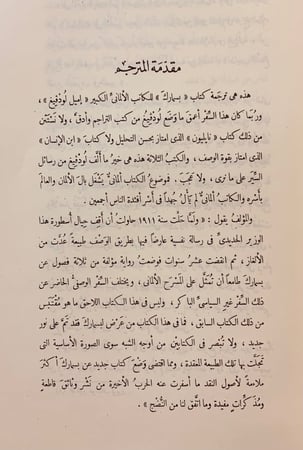 مقدمة المترجم
هذه هي ترجمة كتاب « بسمارك » للكاتب الألماني الكبير « إميل لُودْفِيغ » ،
وربما كان هذا السِّفر أعمقَ ما وَضَع لُودْفِيغُ من كتب التراجم وأدقَّ ، ولا نَسْتَثْنِي
من ذلك كتابَ « نابليون » الذي امتاز بحسن التحليل ولا كتابَ « ابن الإنسان »
الذي امتاز بقوة الوصف ، والكتبُ الثلاثة هذه هي خيرُ ما ألَّف لُودْفِيغُ من رسائل
السِّيَر على ما نرى ، ولا عجبَ ، فموضوعُ الكتاب ألمانيٌّ يَشْغَل بالَ الألمان والعالم
بأَسْرِه والكاتب ألمانيٌّ لم يَأْلُ جُهدًا في أَسْر أفئدة الناس أجمعين .
والمؤلف يقول : « ولمَّا حلَّت سنة ١٩١١ حاولتُ أن أقف حِيالَ أسطورة هذا
الوزير الحديديِّ في رسالة نفسية عارضًا فيها بطريق الوَصْف طبيعةً عُدَّت من
الألغاز ، ثم انقضت عشرُ سنوات فوضعتُ رواية مؤلفة من ثلاثة فصول عن
بسمارك طامعاً أن تُمَثَّل على المسْرح الألماني ، ويختلف السِّفْر الوصفيُّ الحاضر عن
ذلك السِّفر غير السياسيِّ الباكر ، وليس في هذا الكتاب اللاحق ما هو مُقْتَبَس
من ذلك الكتاب السابق ، فما في هذا الكتاب من عَرْض لبسمارك فقد تمَّ على نور
جديد ، ولا تُبْصر في الكتابَيْن من أوجه الشبه سوى الصورة الأساسية التي
تجلَّت بها تلك الطبيعة المعقدة ، ومما اقتضى وَضْعَ كتاب جديد عن بسمارك أكثرَ
ملاءمة لأصول النقد ما أسفرت عنه الحربُ الأخيرة من نَشْر وثائقَ قاطعةٍ
ومُذَكِّراتٍ مفيدة وما اتَّفق لنا من النُّضْج »